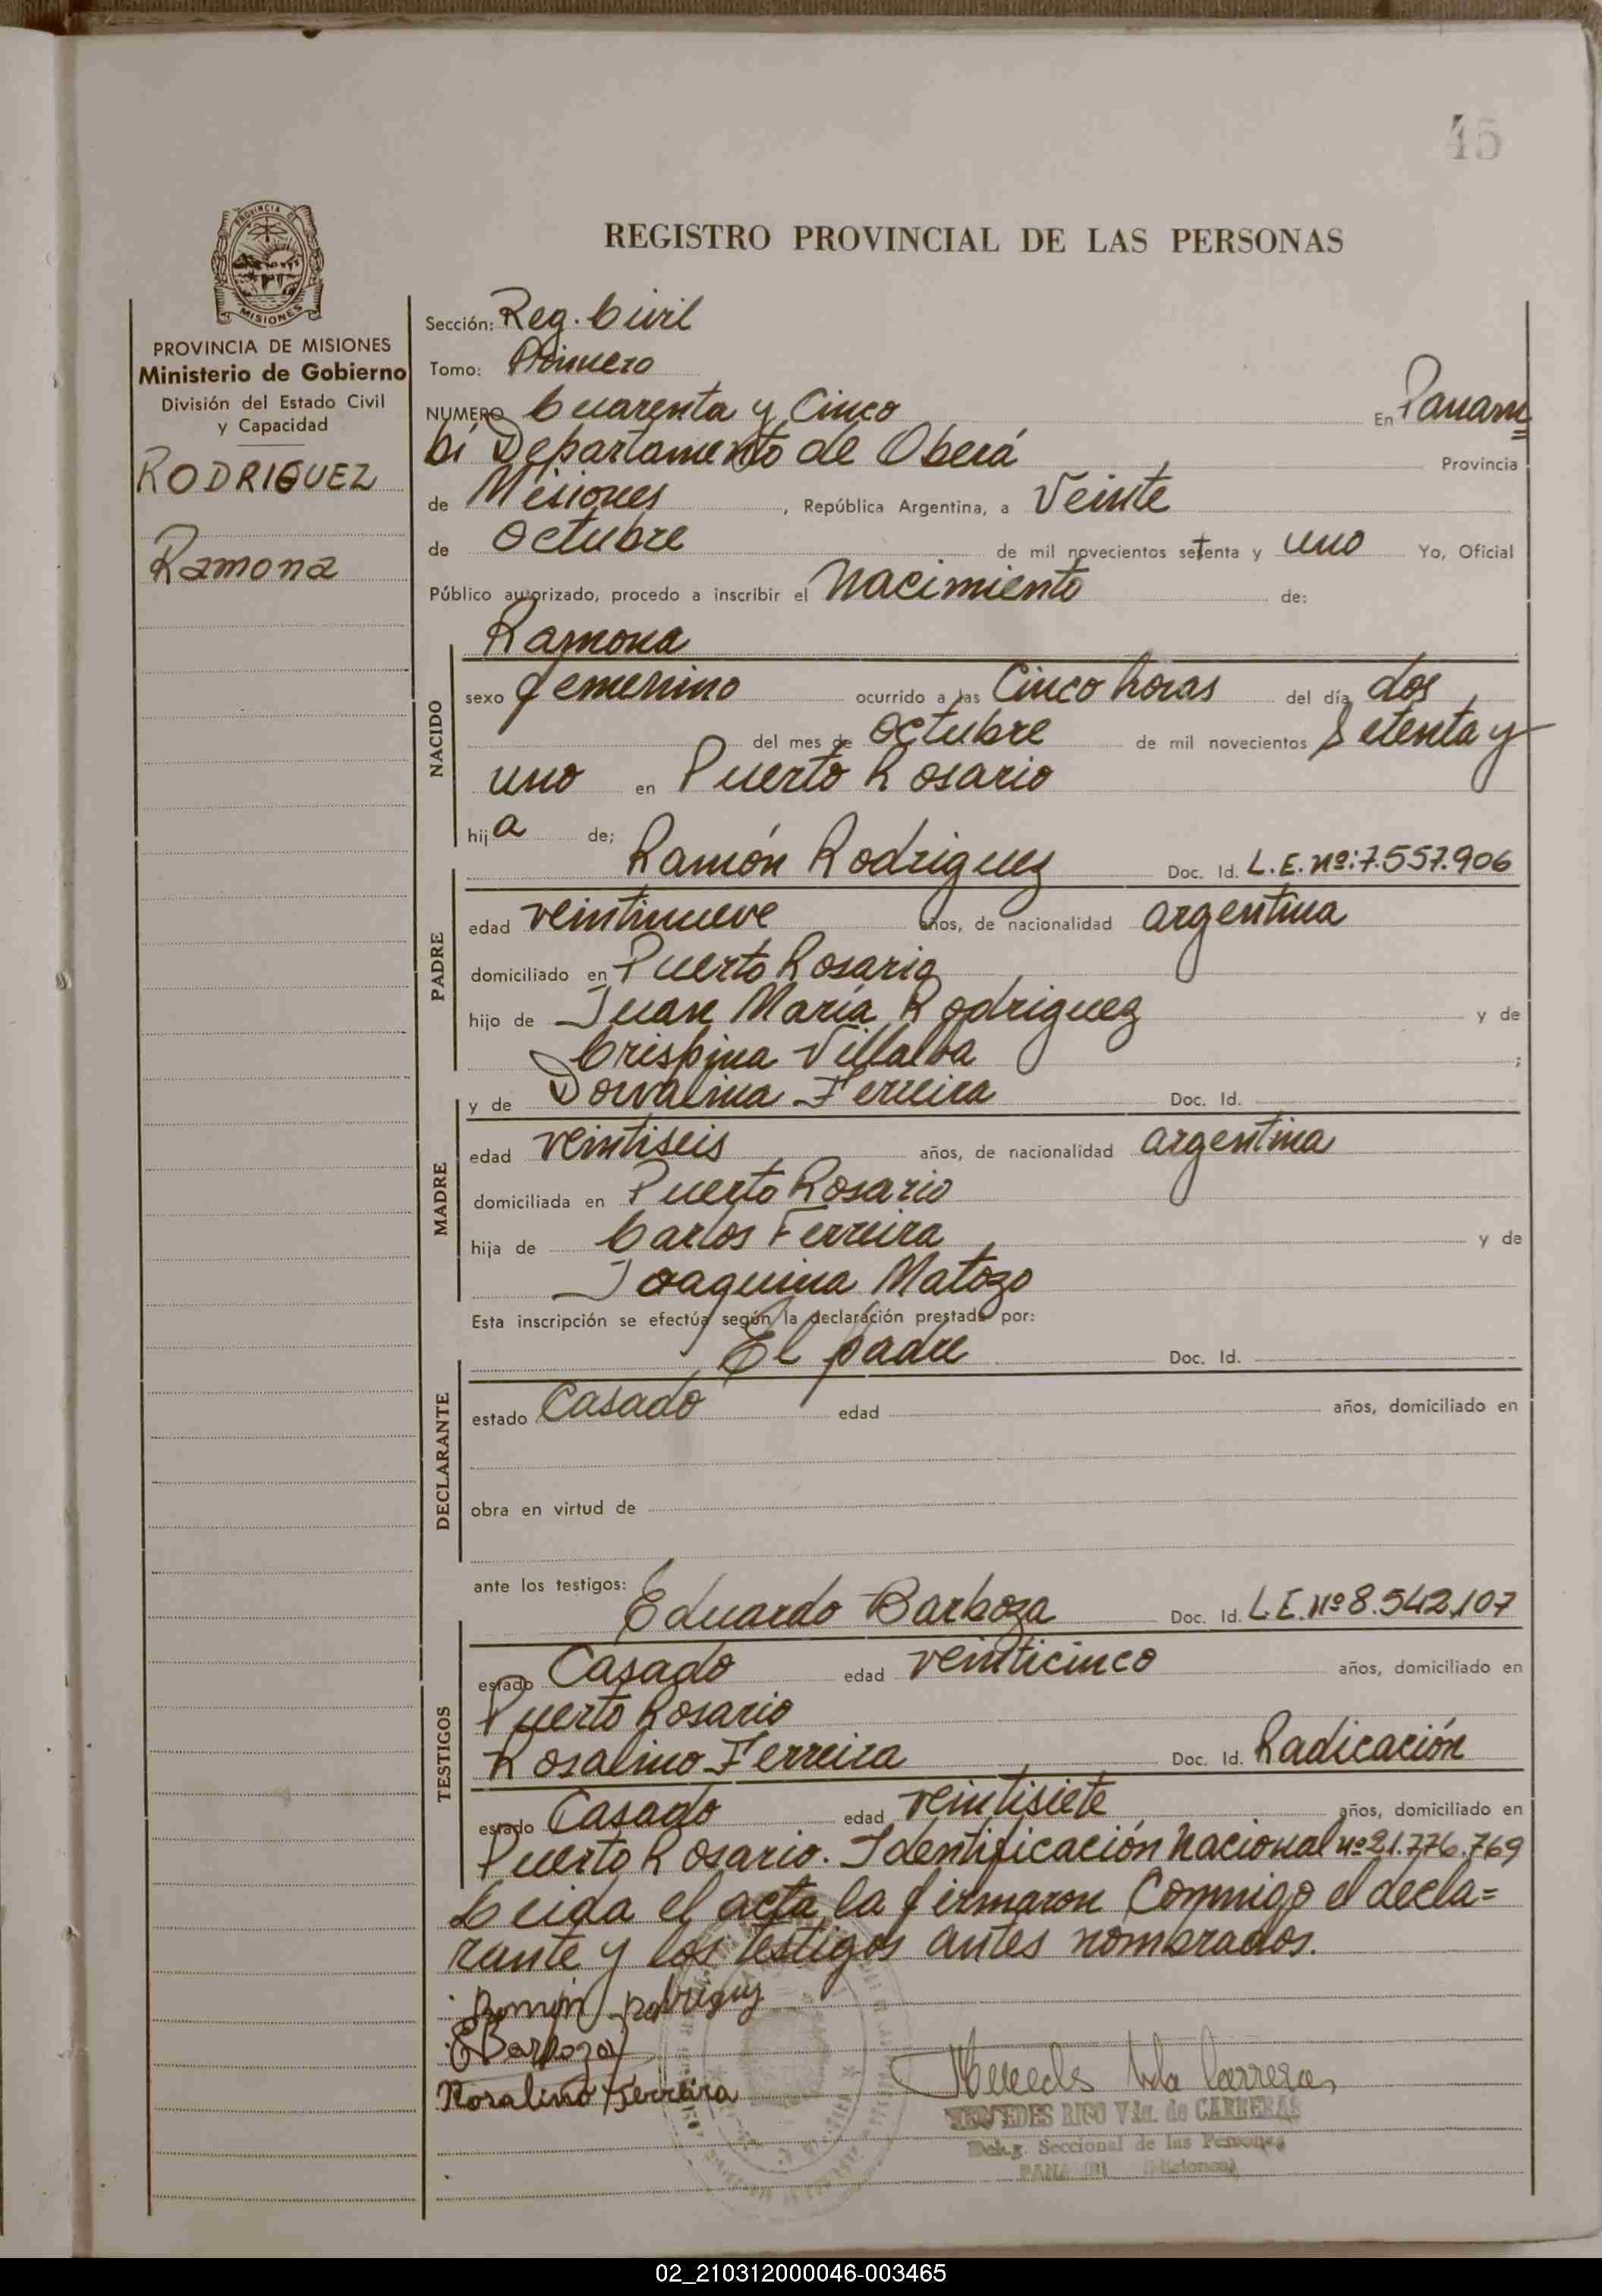 45
REGISTRO PROVINCIAL DE LAS PERSONAS
PROVINCIA DE MISIONES
Ministerio de Gobierno
División del Estado Civil
y Capacidad
RODRIGUEZ
Ramona
Sección: Reg. Civil
Tomo: Primero
NUMERO Cuarenta y Cinco En Panam=
bí Departamento de Oberá Provincia
de Misiones, República Argentina, a Veinte
de Octubre de mil novecientos setenta y uno Yo, Oficial
Público autorizado, procedo a inscribir el nacimiento de:
Ramona
NACIDO
sexo femenino ocurrido a las Cinco horas del día dos
del mes de octubre de mil novecientos Setenta y
uno en Puerto Rosario
hija de;
Ramón Rodriguez Doc. Id. L.E. nº: 7.557.906
PADRE
edad veintinueve años, de nacionalidad argentina
domiciliado en Puerto Rosario
hijo de Juan María Rodriguez y de
Crispina Villalba ;
y de Dorvalina Ferreira Doc. Id.
MADRE
edad veintiseis años, de nacionalidad argentina
domiciliada en Puerto Rosario
hija de Carlos Ferreira y de
Joaquina Matozo
Esta inscripción se efectúa según la declaración prestada por:
El padre Doc. Id.
DECLARANTE
estado Casado edad años, domiciliado en
obra en virtud de
ante los testigos:
Eduardo Barboza Doc. Id. L.E. nº 8.542.107
TESTIGOS
estado Casado edad veinticinco años, domiciliado en
Puerto Rosario
Rosalino Ferreira Doc. Id. Radicación
estado Casado edad veintisiete años, domiciliado en
Puerto Rosario. Identificación Nacional nº 21.776.769
Leida el acta la firmaron Conmigo el decla=
rante y los testigos antes nombrados.
Ramón Rodriguez
E Barboza
Rosalino Ferreira
MERCEDES RIGO Vda. de CARRERAS
Deleg. Seccional de las Personas
PANAMBI (Misiones)
02_210312000046-003465